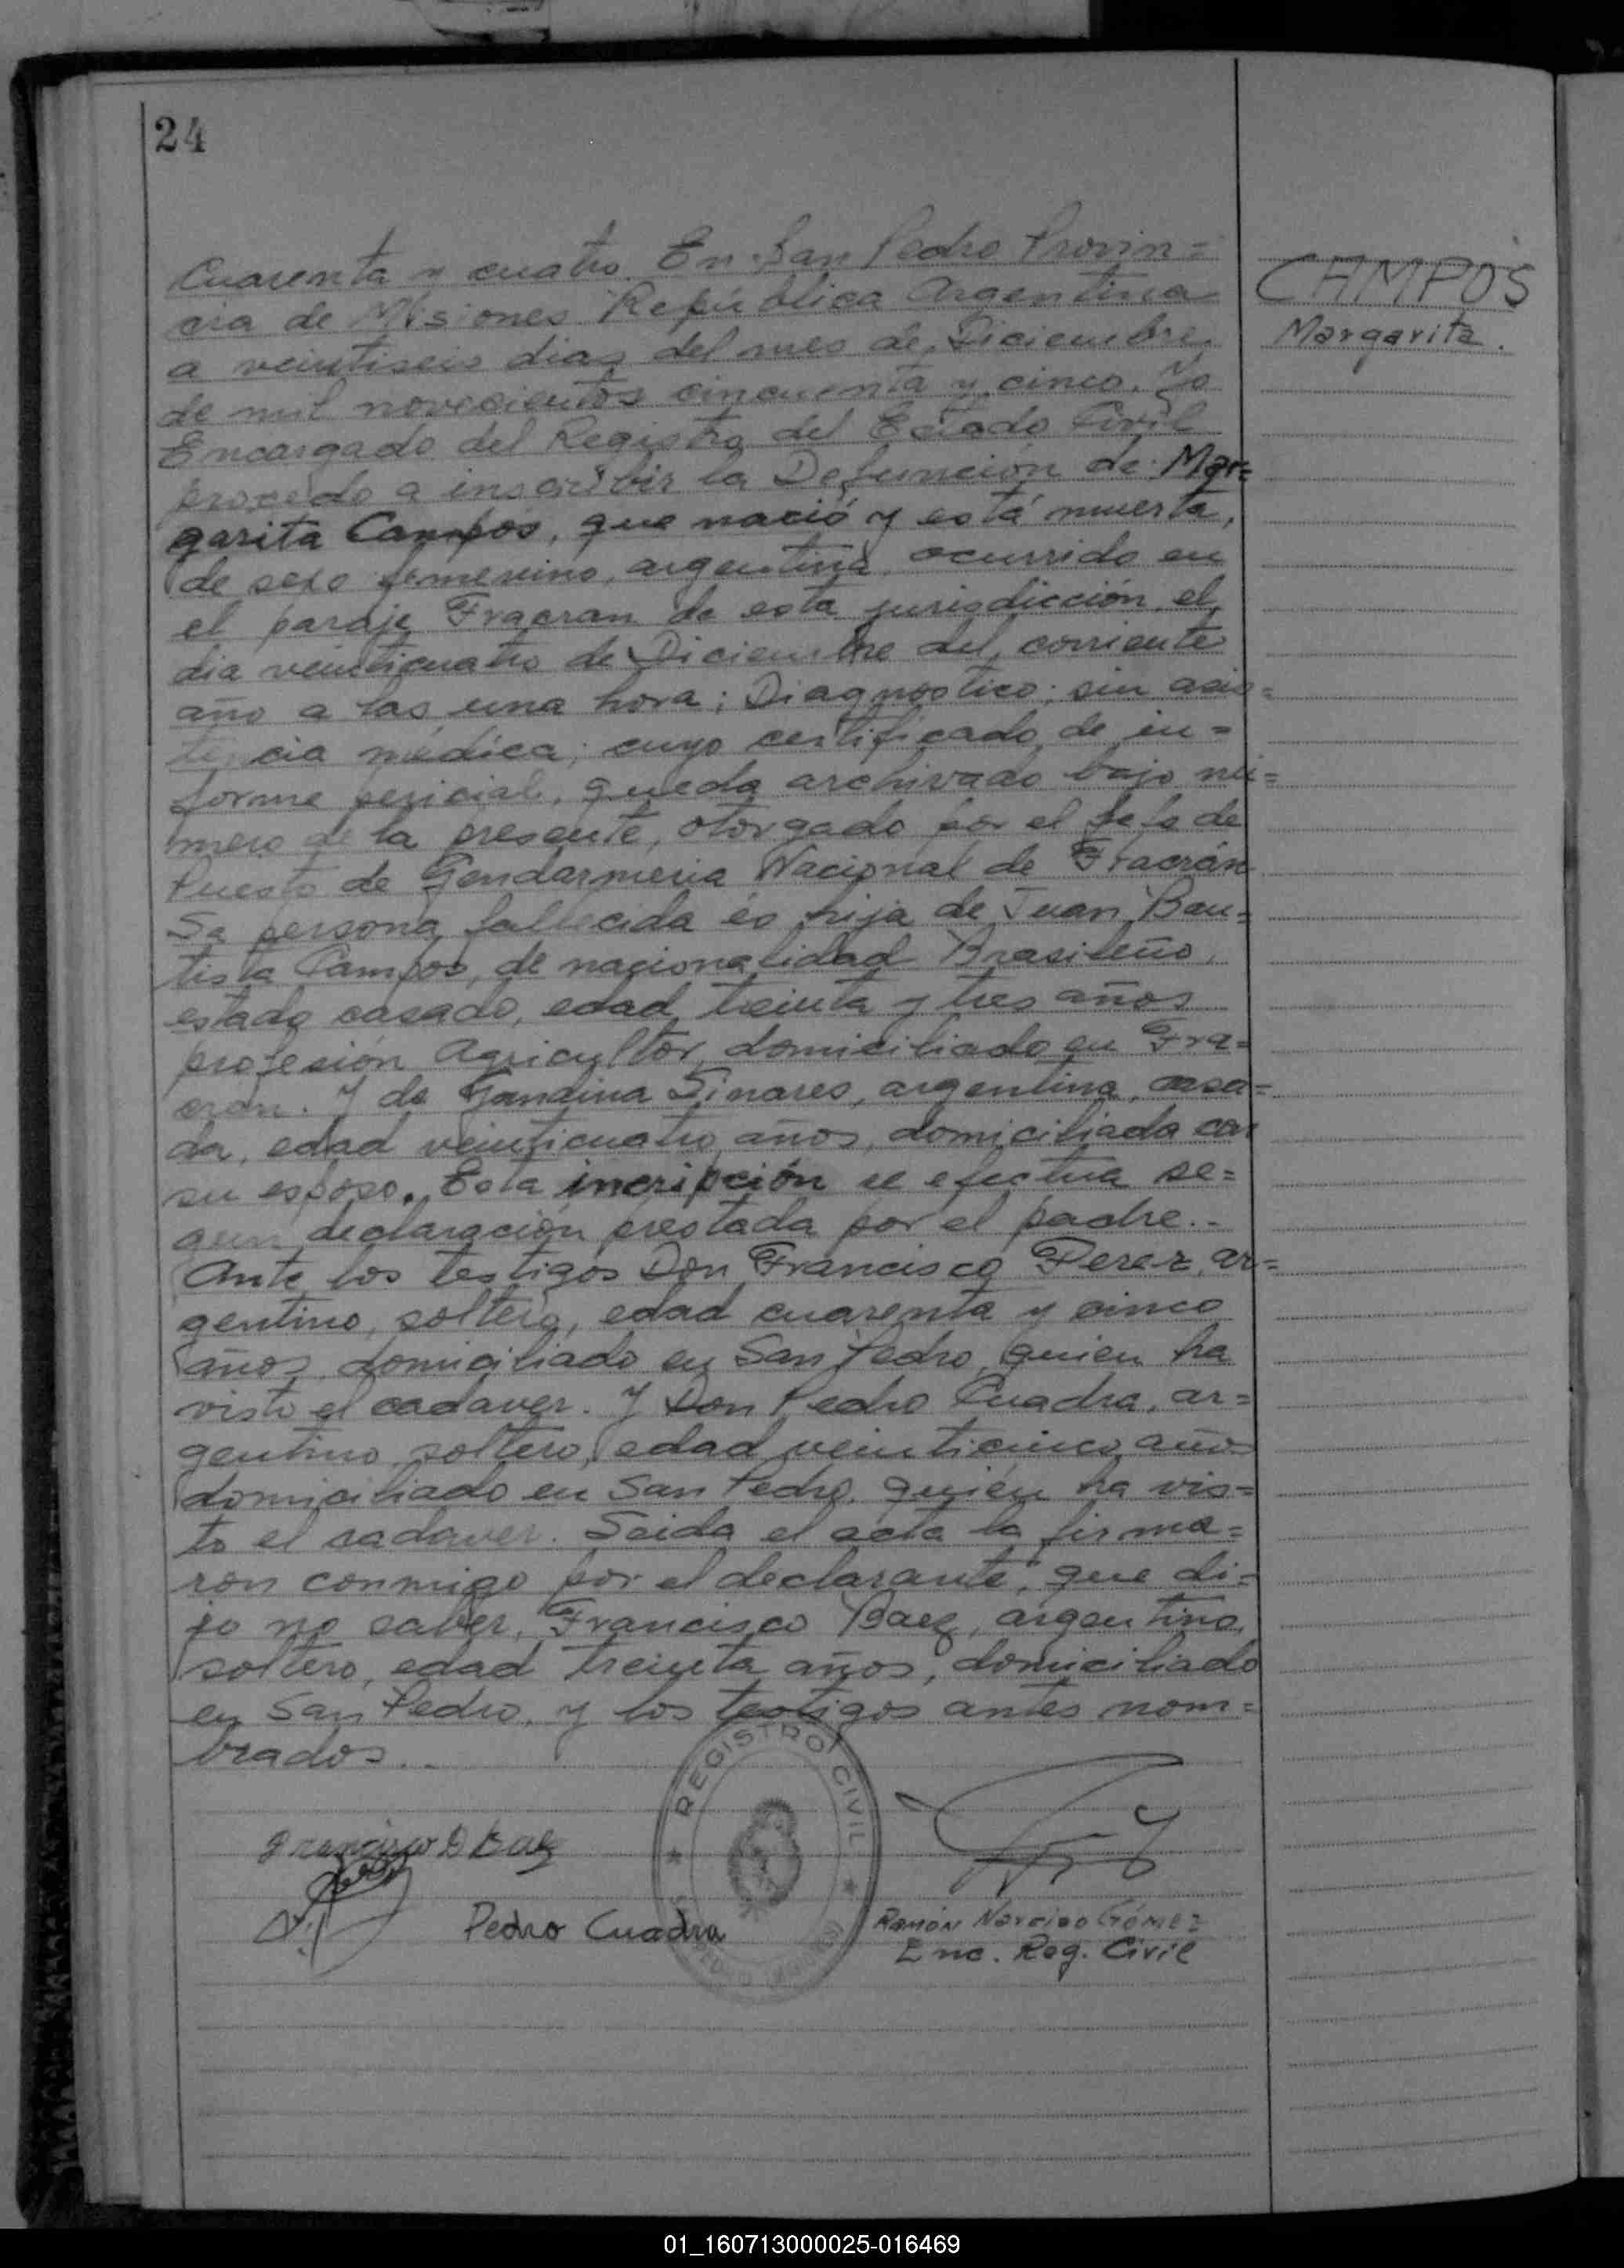 24
Cuarenta y cuatro. En San Pedro Provin=
cia de Misiones República Argentina
a veintiseis dias del mes de Diciembre
de mil novecientos cincuenta y cinco. Yo
Encargado del Registro del Estado Civil
procedo a inscribir la Defunción de: Mar=
garita Campos, que nació y está muerta,
de sexo femenino, argentina, ocurrido en
el paraje Fracran de esta jurisdicción, el
dia veinticuatro de Diciembre del corriente
año a las una hora; Diagnostico: sin asis=
tencia médica; cuyo certificado de in=
forme pericial, queda archivado bajo nú=
mero de la presente, otorgado por el Jefe de
Puesto de Gendarmeria Nacional de Fracrán
La persona fallecida es hija de Juan Bau=
tista Campos, de nacionalidad Brasileño,
estado casado, edad treinta y tres años
profesión Agricultor, domiciliado en Fra=
cran. Y de Linares, argentina, casa=
da, edad veinticuatro años, domiciliada con
su esposo. Esta incripción se efectua se=
gun declaración prestada por el padre.-
Ante los testigos Don Francisco Perez, ar=
gentino, soltero, edad cuarenta y cinco
años, domiciliado en San Pedro, quien ha
visto el cadaver. Y Don Pedro Cuadra, ar=
gentino, soltero, edad veinticinco años
domiciliado en San Pedro, quién ha vis=
to el cadaver. Leida el acta la firma=
ron conmigo por el declarante, que di=
jo no saber, Francisco Baez, argentino,
soltero, edad treinta años, domiciliado
en San Pedro, y los testigos antes nom=
brados..-
CAMPOS
Margarita.
REGISTRO CIVIL
Francisco Baez
Pedro Cuadra
Ramón Narciso Gómez
Enc. Reg. Civil
01_160713000025-016469